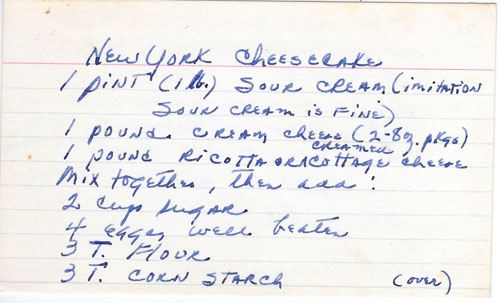 New York Cheesecake
1 pint (1 lb.) Sour Cream (imitation
Sour Cream is Fine)
1 pound cream cheese (2-8oz. pkgs)
creamed
1 pound Ricotta or Cottage cheese
Mix together, then add:
2 cups sugar
4 eggs, well beaten
3 T. Flour
3 T. Corn Starch (over)